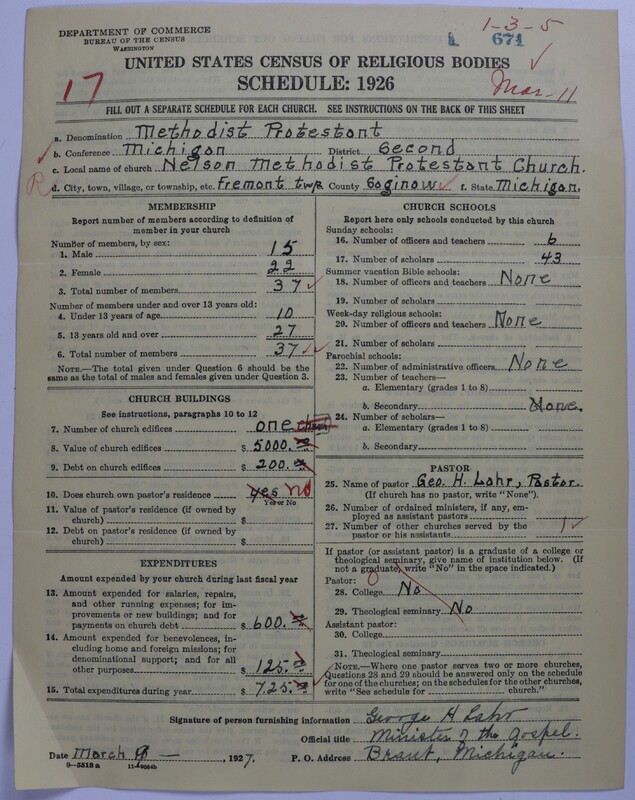 DEPARTMENT OF COMMERCE
BUREAU OF THE CENSUS
WASHINGTON
1-3-5
671
UNITED STATES CENSUS OF RELIGIOUS BODIES
17
SCHEDULE: 1926
Mar-11
FILL OUT A SEPARATE SCHEDULE FOR EACH CHURCH. SEE INSTRUCTIONS ON THE BACK OF THIS SHEET
a. Denomination Methodist Protestant
b. Conference Michigan District Second
c. Local name of church Nelson Methodist Protestant Church.
d. City, town, village, or township, etc. Fremont twp County Saginaw f. State Michigan.
MEMBERSHIP
Report number of members according to definition of member in your church
Number of members, by sex:
1. Male 15
2. Female 22
3. Total number of members 37
Number of members under and over 13 years old:
4. Under 13 years of age 10
5. 13 years old and over 27
6. Total number of members 37
NOTE.—The total given under Question 6 should be the same as the total of males and females given under Question 3.
CHURCH BUILDINGS
See instructions, paragraphs 10 to 12
7. Number of church edifices one
8. Value of church edifices $ 5000.
9. Debt on church edifices $ 200.
10. Does church own pastor's residence yes no
Yes or No
11. Value of pastor's residence (if owned by church) $
12. Debt on pastor's residence (if owned by church) $
EXPENDITURES
Amount expended by your church during last fiscal year
13. Amount expended for salaries, repairs, and other running expenses; for improvements or new buildings; and for payments on church debt $ 600.
14. Amount expended for benevolences, including home and foreign missions; for denominational support; and for all other purposes $ 125.
15. Total expenditures during year $ 725.
CHURCH SCHOOLS
Report here only schools conducted by this church
Sunday schools:
16. Number of officers and teachers 6
17. Number of scholars 43
Summer vacation Bible schools:
18. Number of officers and teachers None
19. Number of scholars
Week-day religious schools:
20. Number of officers and teachers None
21. Number of scholars
Parochial schools:
22. Number of administrative officers None
23. Number of teachers—
a. Elementary (grades 1 to 8)
b. Secondary None.
24. Number of scholars—
a. Elementary (grades 1 to 8)
b. Secondary
PASTOR
25. Name of pastor Geo. H. Lahr, Pastor.
(If church has no pastor, write "None").
26. Number of ordained ministers, if any, employed as assistant pastors
27. Number of other churches served by the pastor or his assistants 1
If pastor (or assistant pastor) is a graduate of a college or theological seminary, give name of institution below. (If not a graduate, write "No" in the space indicated.)
Pastor:
28. College No
29. Theological seminary No
Assistant pastor:
30. College
31. Theological seminary
NOTE.—Where one pastor serves two or more churches, Questions 28 and 29 should be answered only on the schedule for one of the churches; on the schedules for the other churches, write "See schedule for church."
Signature of person furnishing information George H Lahr
Official title Minister of the Gospel.
Date March 9 — , 1927. P. O. Address Brant, Michigan.
9-5518a